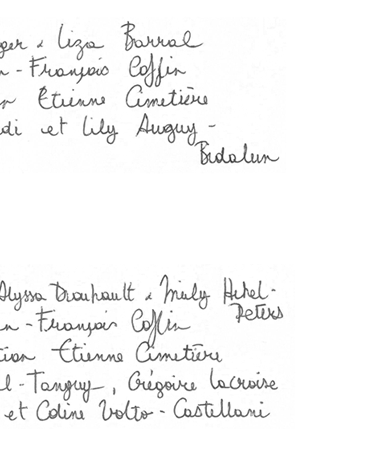 ger & Liza Barral
n-François Coffin
n Étienne Cimetière
di et Lily Auguy-
Bidalun
Alyssa Drouhault & Mialy Hehel-
Peters
n-François Coffin
tian Étienne Cimetière
l-Tanguy, Grégoire Lacroise
et Coline Volto-Castellani